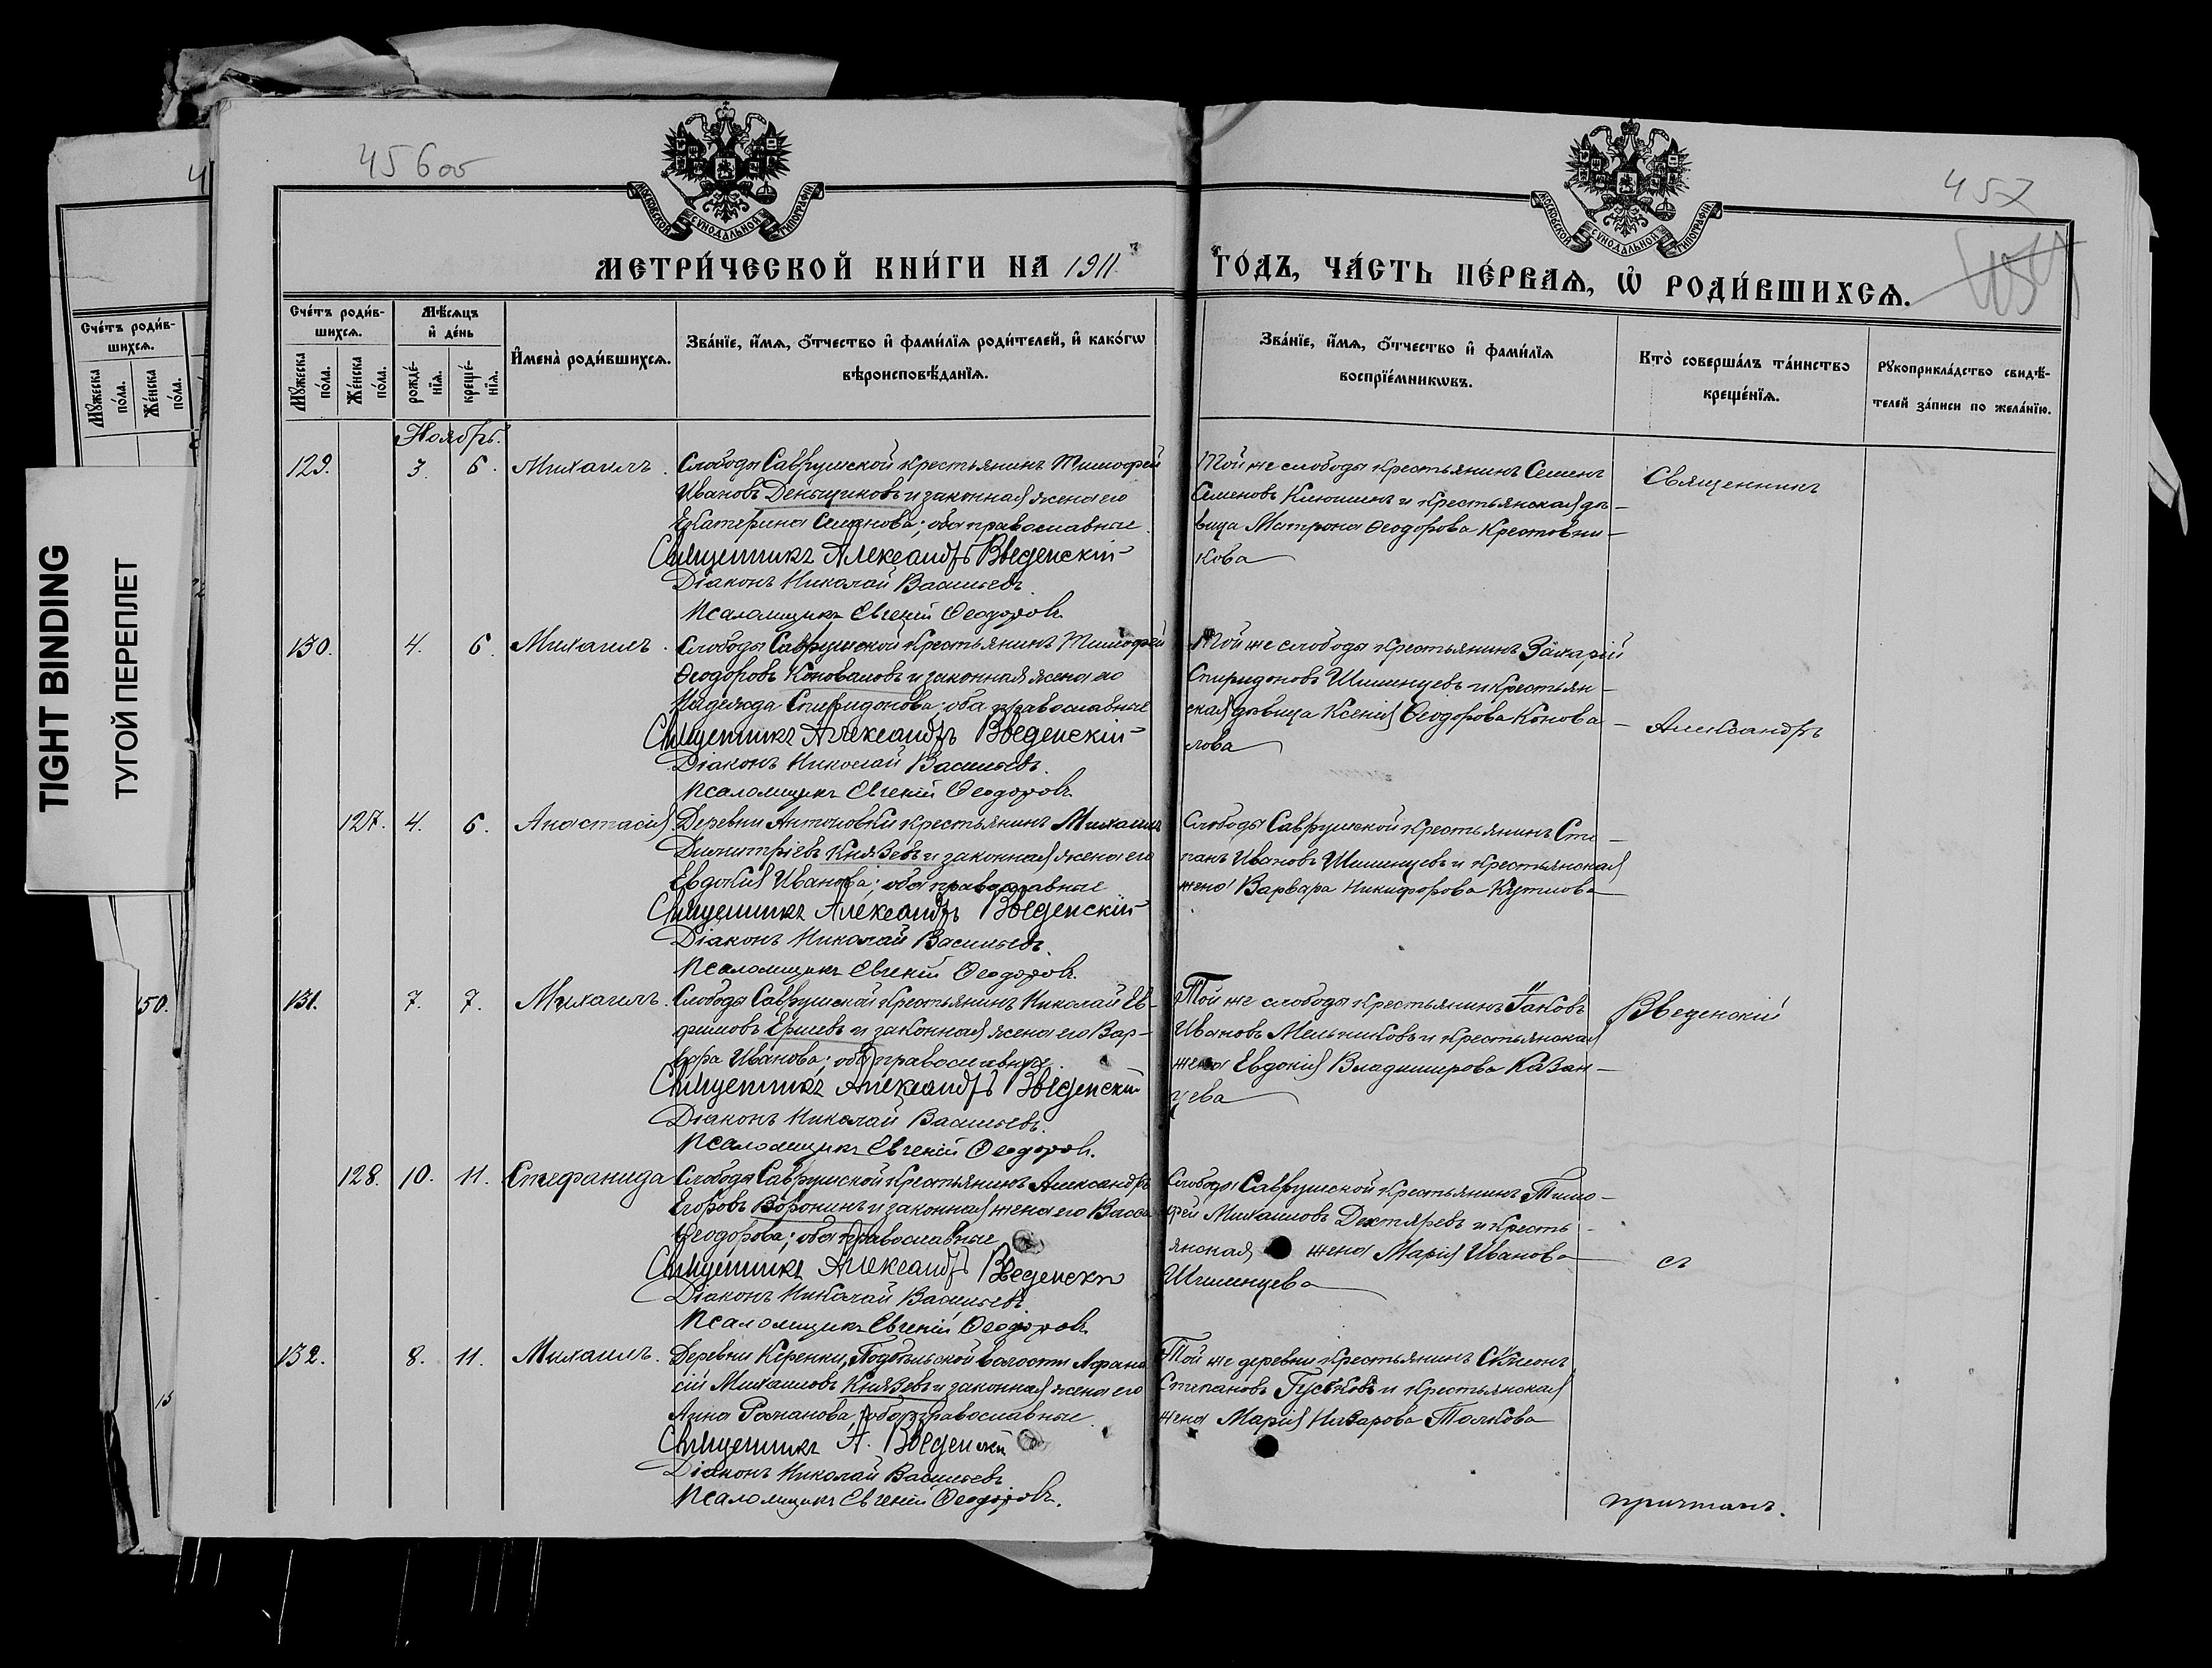 45600
457
МОСКОВСКОЙ СѴНОДАЛЬНОЙ ТИПОГРАФІИ
МОСКОВСКОЙ СѴНОДАЛЬНОЙ ТИПОГРАФІИ
МЕТРИ́ЧЕСКОЙ КНИ́ГИ НА 1911
ГО́ДЪ, ЧА́СТЬ ПЕ́РВАѦ, Ѡ҆ РОДИ́ВШИХСѦ.
Сче́тъ роди́в-
шихсѧ.
Мꙋ́жеска
по́ла.
Же́нска
по́ла.
TIGHT BINDING
ТУГОЙ ПЕРЕПЛЕТ
150.
Сче́тъ роди́в-
шихсѧ.
Мꙋ́жеска
по́ла.
Же́нска
по́ла.
Мѣ́сѧцъ
и҆ де́нь
рожде́-
нїѧ.
креще́-
нїѧ.
И҆мена̀ роди́вшихсѧ.
Зва́нїе, и҆́мѧ, ѻ҆́тчество и҆ фами́лїѧ роди́телей, и҆ како́гѡ
вѣроисповѣ́данїѧ.
Зва́нїе, и҆́мѧ, ѻ҆́тчество и҆ фами́лїѧ
воспрїе́мникѡвъ.
Кто̀ соверша́лъ та́инство
креще́нїѧ.
Рꙋкоприкла́дство свидѣ́-
телей за́писи по жела́нїю.
Ноябрь.
129. 3. 6. Михаилъ. Слободы Саврушской крестьянинъ Тимофей
Ивановъ Деньщиковъ и законная жена его
Екатерина Семенова; оба православные
Священникъ Александръ Введенскій
Діаконъ Николай Васильевъ.
Псаломщикъ Евгеній Ѳеодоровъ.
Той же слободы крестьянинъ Семенъ
Семеновъ Клюшинъ и крестьянская дѣ-
вица Матрона Ѳеодорова Крестовни-
кова
130. 4. 6. Михаилъ. Слободы Саврушской крестьянинъ Тимофей
Ѳеодоровъ Коноваловъ и законная жена его
Надежда Спиридонова; оба православные
Священникъ Александръ Введенскій
Діаконъ Николай Васильевъ.
Псаломщикъ Евгеній Ѳеодоровъ.
Той же слободы крестьянинъ Захарій
Спиридоновъ Шишенцевъ и крестьян-
ская дѣвица Ксенія Ѳеодорова Конова-
лова
127. 4. 6. Анастасія. Деревни Антоновки крестьянинъ Михаилъ
Димитріевъ Князевъ и законная жена его
Евдокія Иванова; оба православные
Священникъ Александръ Введенскій
Діаконъ Николай Васильевъ.
Псаломщикъ Евгеній Ѳеодоровъ.
Слободы Саврушской крестьянинъ Сте-
панъ Ивановъ Шишенцевъ и крестьянская
жена Варвара Никифорова
131. 7. 7. Михаилъ. Слободы Саврушской крестьянинъ Николай Ев-
фимовъ Ершевъ и законная жена его Вар-
вара Иванова; оба православные
Священникъ Александръ Введенскій
Діаконъ Николай Васильевъ.
Псаломщикъ Евгеній Ѳеодоровъ.
Той же слободы крестьянинъ Іаковъ
Ивановъ Мельниковъ и крестьянская
жена Евдокія Владимирова Казан-
цева
128. 10. 11. Стефанида Слободы Саврушской крестьянинъ Александръ
Егоровъ Воронинъ и законная жена его Васса
Ѳеодорова; оба православные
Священникъ Александръ Введенскій
Діаконъ Николай Васильевъ.
Псаломщикъ Евгеній Ѳеодоровъ.
Слободы Саврушской крестьянинъ Тимо-
фей Михаиловъ Дехтяревъ и кресть-
янская жена Марія Иванова
Шишенцева
132. 8. 11. Михаилъ. Деревни Керенки, Подбѣльской волости Афана
сій Михаиловъ Князевъ и законная жена его
Анна Романова; оба православные
Священникъ А. Введенскій
Діаконъ Николай Васильевъ
Псаломщикъ Евгеній Ѳеодоровъ.
Той же деревни крестьянинъ
Степановъ Гусѣковъ и крестьянская
жена Марія Назарова Толкова
Священникъ
Александръ
Введенскій
съ
причтомъ.